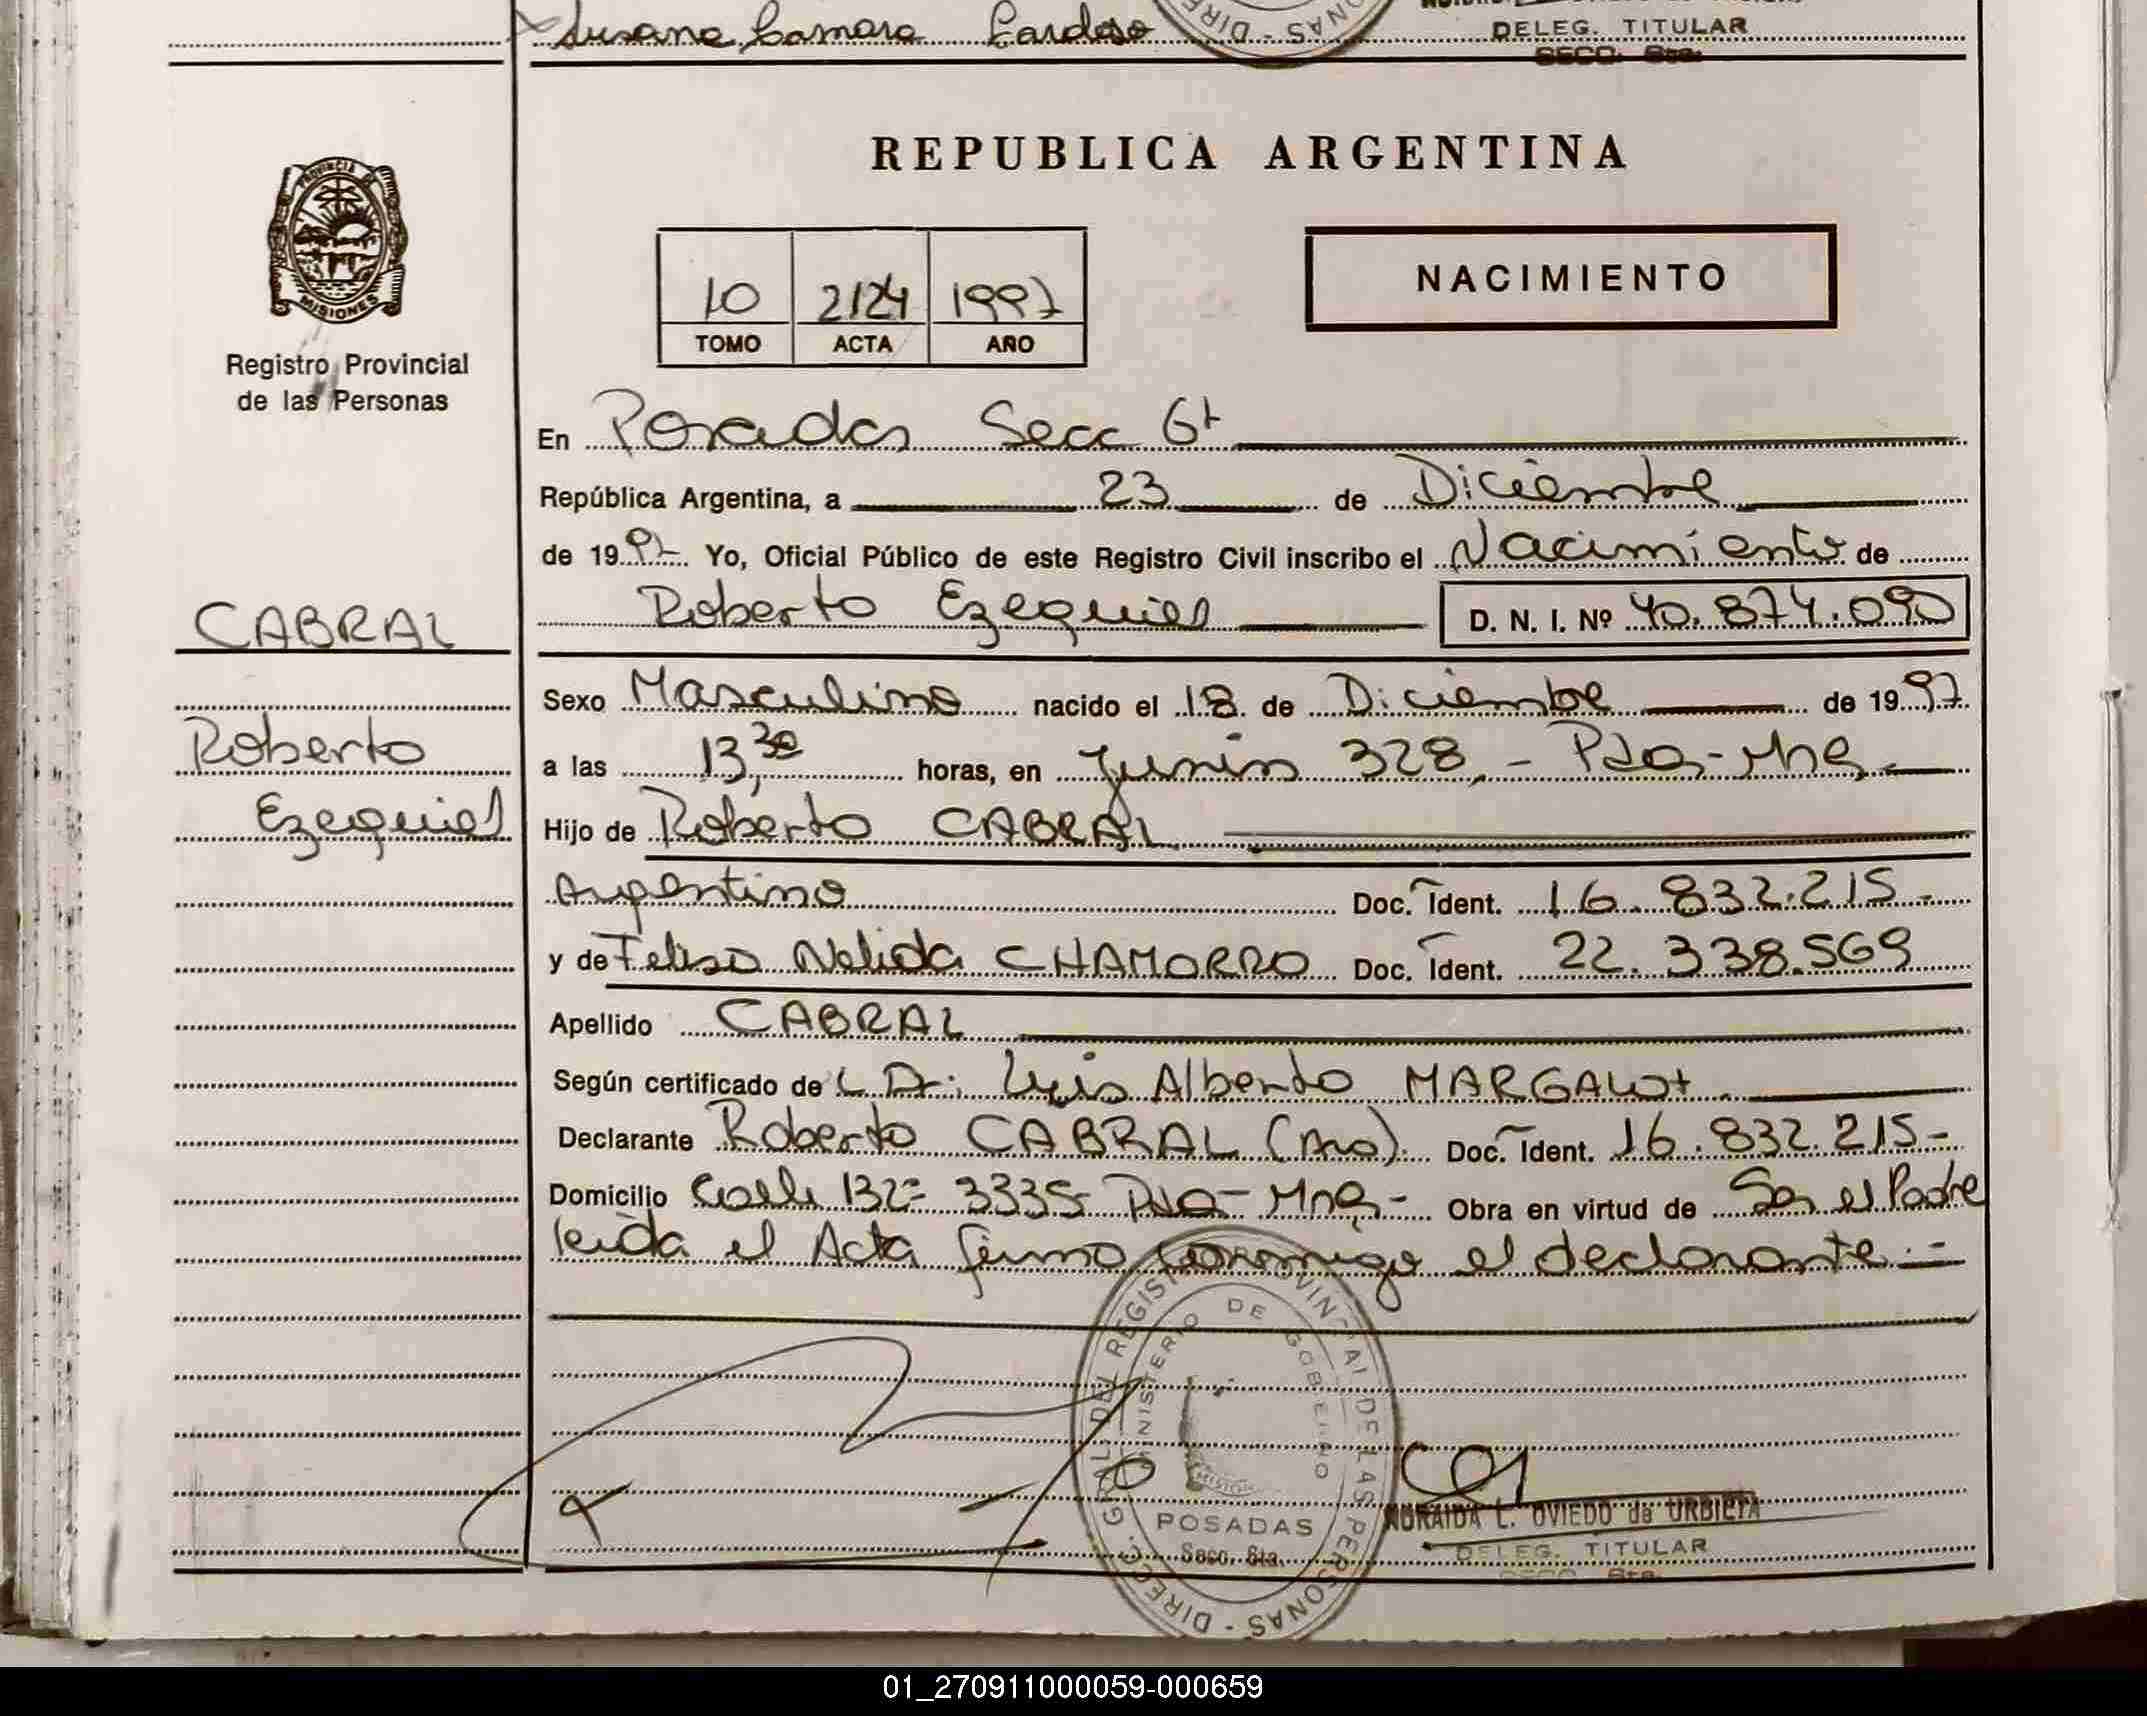 Susana Camara Cardoso
DELEG. TITULAR
SECC. 6ta.
DIRE
ONAS
PROVINCIA DE
MISIONES
Registro Provincial
de las Personas
REPUBLICA ARGENTINA
10 2124 1997
TOMO ACTA AÑO
NACIMIENTO
En Posadas Secc 6t
República Argentina, a 23 de Diciembre
de 1997 Yo, Oficial Público de este Registro Civil inscribo el Nacimiento de
Roberto Ezequiel D. N. I. Nº 40.874.090
CABRAL
Roberto
Ezequiel
Sexo Masculino nacido el 18 de Diciembre de 1997
a las 13,30 horas, en Junin 328,- Pdas-Mnes.
Hijo de Roberto CABRAL
Argentino Doc. Ident. 16.832.215-
y de Felisa Nelida CHAMORRO Doc. Ident. 22.338.569
Apellido CABRAL
Según certificado de L Dr: Luis Alberto MARGALOT
Declarante Roberto CABRAL (Arg). Doc. Ident. 16.832.215-
Domicilio Calle 132- 3335- Pdas- Mnes- Obra en virtud de Ser el Padre
leida el Acta firma conmigo el declarante.=
DIRECC. GRAL. DEL REGISTRO PROVINCIAL DE LAS PERSONAS
MINISTERIO DE GOBIERNO
MISIONES
POSADAS
Secc. 6ta.
NORAIDA L. OVIEDO de URBIETA
DELEG. TITULAR
SECC. 6ta.
01_270911000059-000659